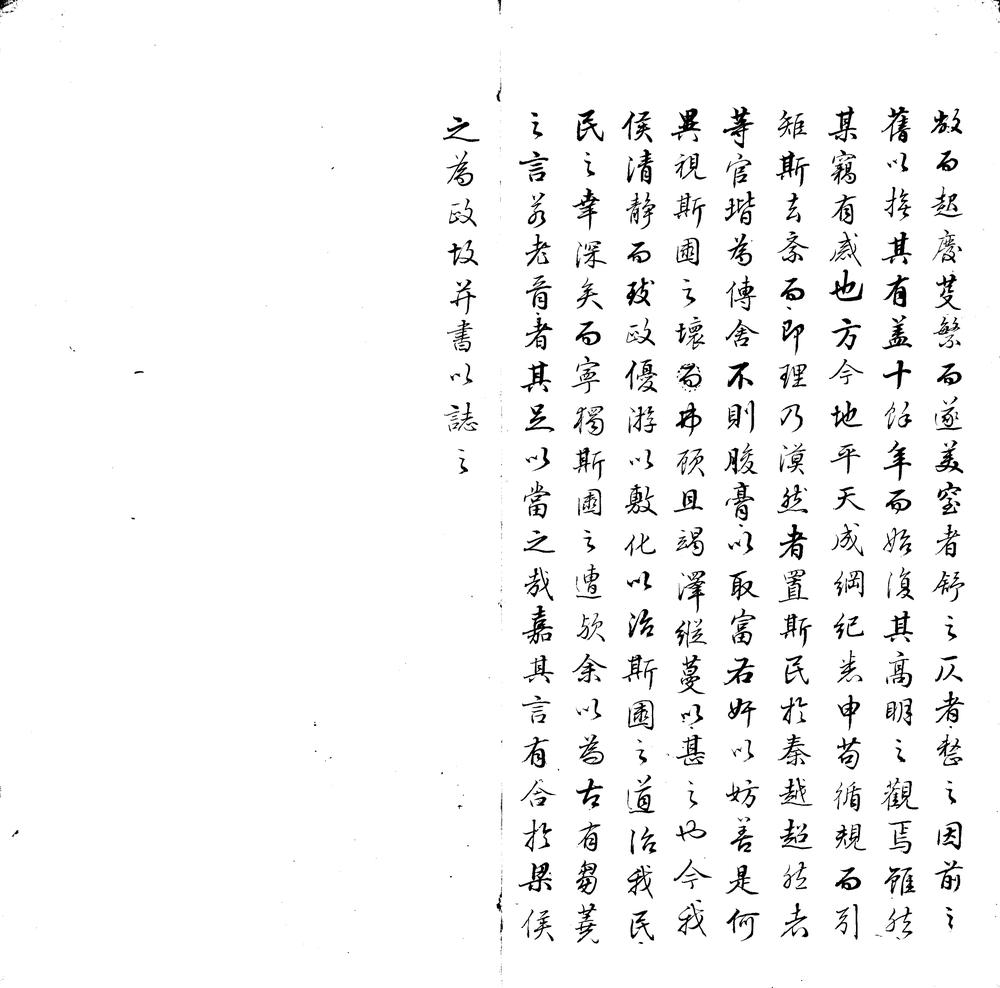 敧而起廢芟繁而遂美窒者舒之仄者整之因前之
舊以其有蓋十餘年而始復其高明之觀焉雖然
某竊有感也方今地平天成綱紀悉申苟循規而引
矩斯去紊而即理乃漠然者置斯民於秦越超然者
等官堦為傳舍不則朘膏以取富右奸以妨善是何
異視斯圃之壞而弗顧且竭澤縱蔓以甚之也今我
侯清静而致政優游以敷化以治斯圃之道治我民
民之幸深矣而寧獨斯圃之遭歟余以為古有芻蕘
之言若老者其足以當之哉嘉其言有合於梁侯
之為政故并書以誌之